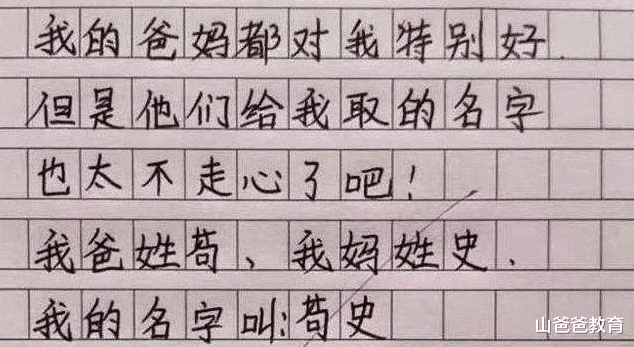 我的爸妈都对我特别好.
但是他们给我取的名字
也太不走心了吧!
我爸姓苟、我妈姓史.
我的名字叫:苟史
山爸爸教育